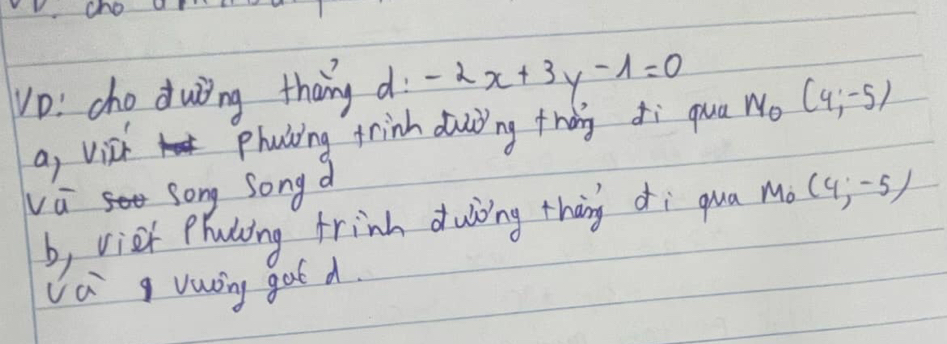 VD: cho
VD: cho đường thẳng d: -2x+3y-1=0
a, viết phương trình đường thẳng đi qua M₀ (4;-5)
và song song d
b, viết phương trình đường thẳng đi qua M₀ (4;-5)
và vuông góc d.